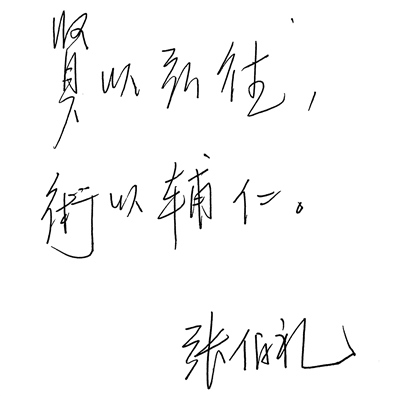 贤以弘德，
術以輔仁。
张伯礼